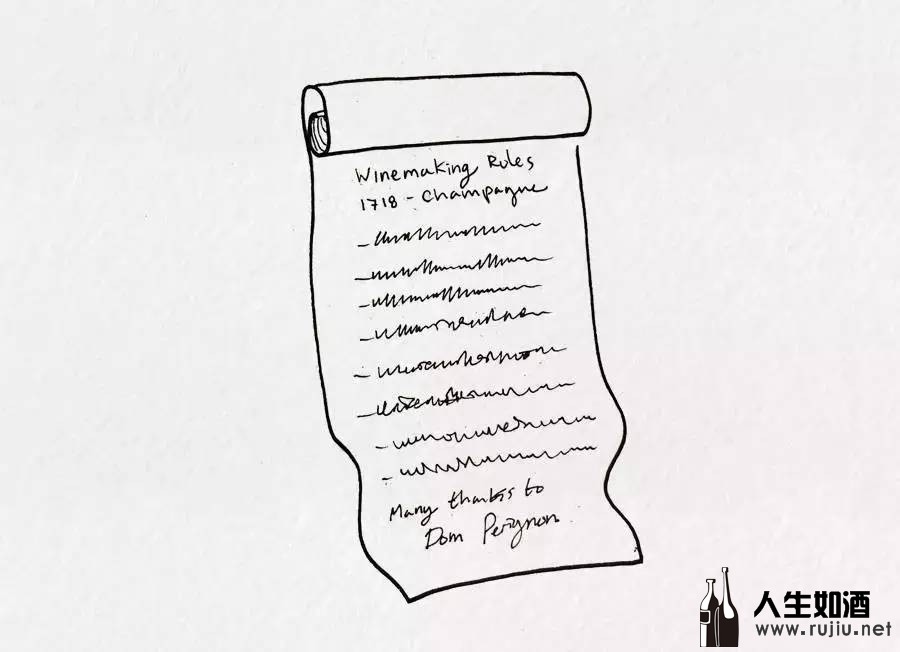 Winemaking Rules
1718 - Champagne
Many thanks to
Dom Perignon
人生如酒
www.rujiu.net